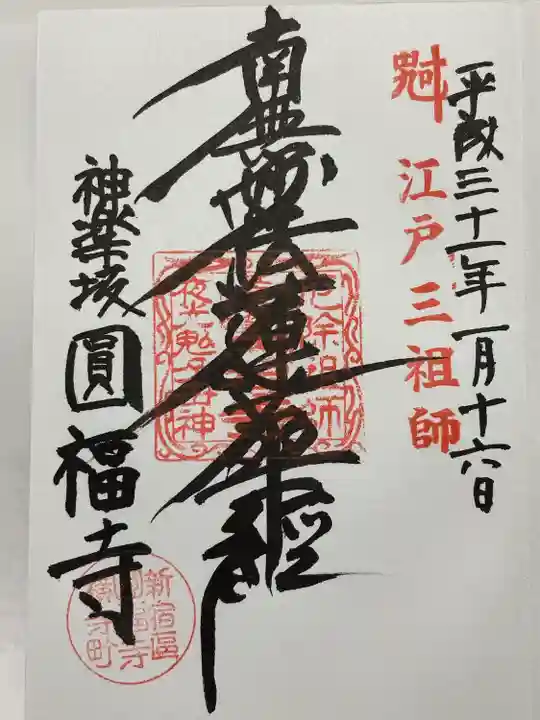 平成三十一年一月十六日
江戸三祖師
南無妙法蓮華経
厄除祖師
神楽坂圓福寺
新宿區
圓福寺
横寺町